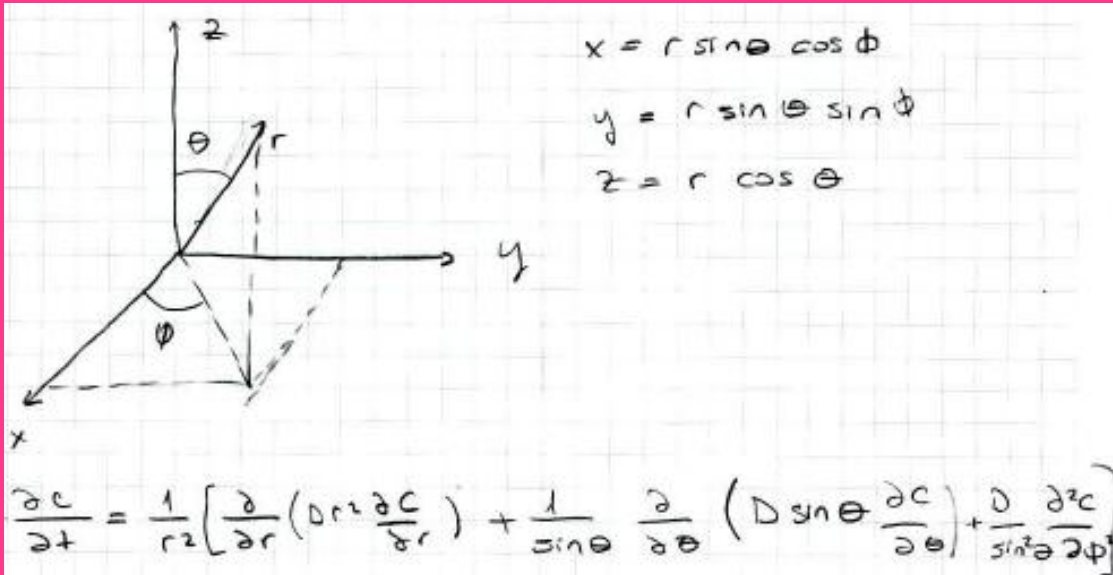 z
x = r sinθ cos ϕ
θ
r
y = r sin θ sin ϕ
z = r cos θ
y
φ
x
∂c/∂t = 1/r² [∂/∂r (Dr² ∂C/∂r) + 1/sinθ ∂/∂θ (D sinθ ∂C/∂θ) + D/sin²θ ∂²C/∂ϕ²]